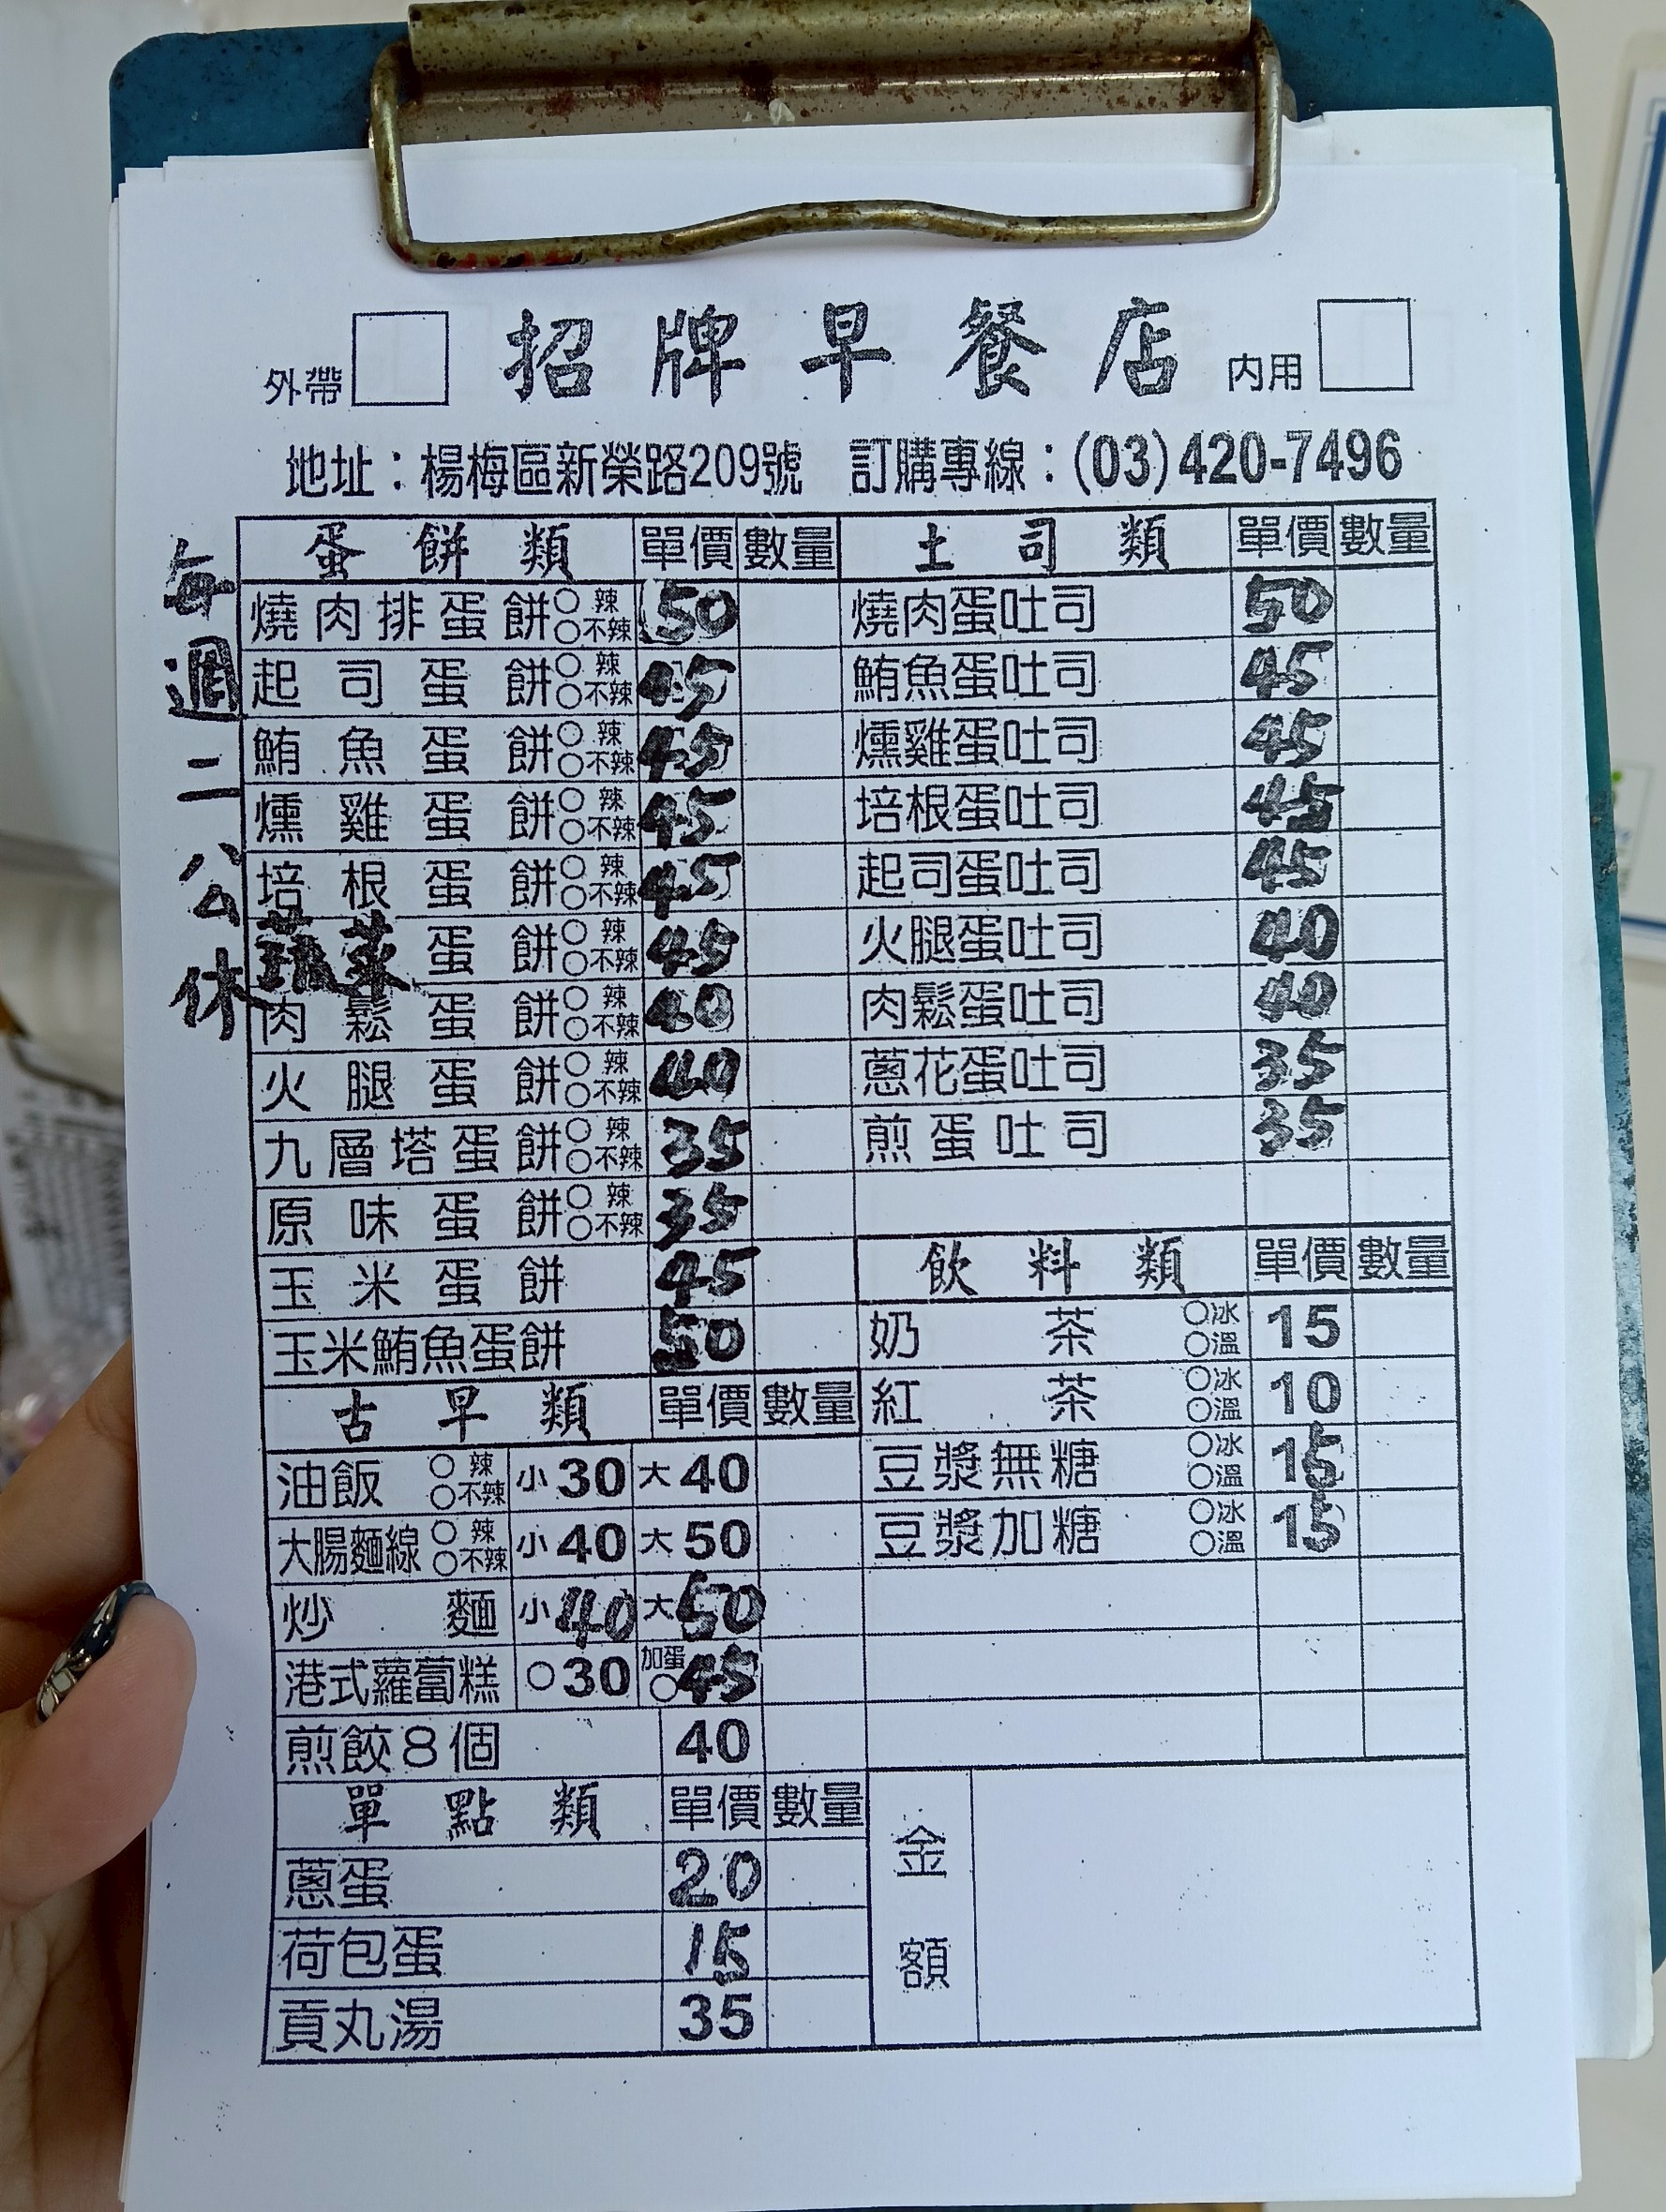 外帶 招牌早餐店 內用
地址：楊梅區新榮路209號 訂購專線：(03)420-7496
每週二公休
蛋餅類 單價 數量
燒肉排蛋餅 ○辣 ○不辣 50
起司蛋餅 ○辣 ○不辣 45
鮪魚蛋餅 ○辣 ○不辣 45
燻雞蛋餅 ○辣 ○不辣 45
培根蛋餅 ○辣 ○不辣 45
蔬菜蛋餅 ○辣 ○不辣 45
肉鬆蛋餅 ○辣 ○不辣 40
火腿蛋餅 ○辣 ○不辣 40
九層塔蛋餅 ○辣 ○不辣 35
原味蛋餅 ○辣 ○不辣 35
玉米蛋餅 45
玉米鮪魚蛋餅 50
古早類 單價 數量
油飯 ○辣 ○不辣 小30 大40
大腸麵線 ○辣 ○不辣 小40 大50
炒麵 小40 大50
港式蘿蔔糕 ○30 加蛋○45
煎餃8個 40
單點類 單價 數量
蔥蛋 20
荷包蛋 15
貢丸湯 35
土司類 單價 數量
燒肉蛋吐司 50
鮪魚蛋吐司 45
燻雞蛋吐司 45
培根蛋吐司 45
起司蛋吐司 45
火腿蛋吐司 40
肉鬆蛋吐司 40
蔥花蛋吐司 35
煎蛋吐司 35
飲料類 單價 數量
奶茶 ○冰 ○溫 15
紅茶 ○冰 ○溫 10
豆漿無糖 ○冰 ○溫 15
豆漿加糖 ○冰 ○溫 15
金額